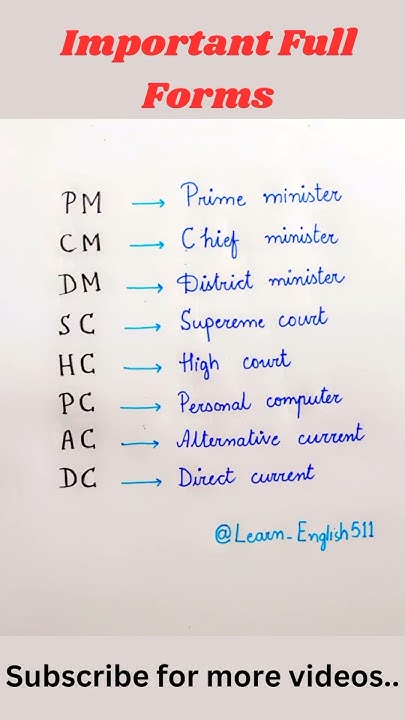 Important Full
Forms
PM → Prime minister
CM → Chief minister
DM → District minister
SC → Supereme court
HC → High court
PC → Personal computer
AC → Alternative current
DC → Direct current
@Learn_English511
Subscribe for more videos..